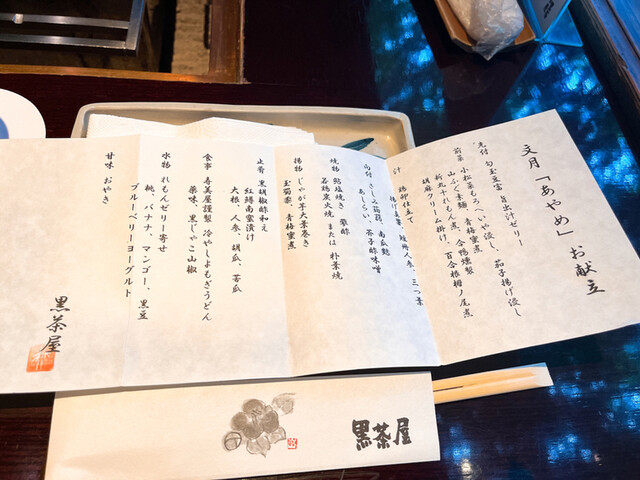 文月「あやめ」お献立
先付 勾玉豆富 旨出汁ゼリー
前菜 小松菜もろへいや浸し、茄子揚げ浸し
山ふぐ素麺、青梅蜜煮
新丸十れもん煮、合鴨燻製
胡麻クリーム掛け、百合根
汁 鶏卵仕立て
人参、三つ葉
向付 さしみ蒟蒻、南瓜麩
あしらい、芥子酢味噌
焼物 鮎塩焼き 蓼酢
若鶏炭火焼 または 朴葉焼
揚物 じゃが芋大葉巻き
玉蜀黍、青梅蜜煮
止肴 黒胡椒酢和え
紅鱒南蛮漬け
大根、人参、胡瓜、苦瓜
食事 寿美屋謹製 冷やしよもぎうどん
薬味、黒じゃこ山椒
水物 れもんゼリー寄せ
桃、バナナ、マンゴー、黒豆
ブルーベリーヨーグルト
甘味 おやき
黒茶屋
黒茶屋